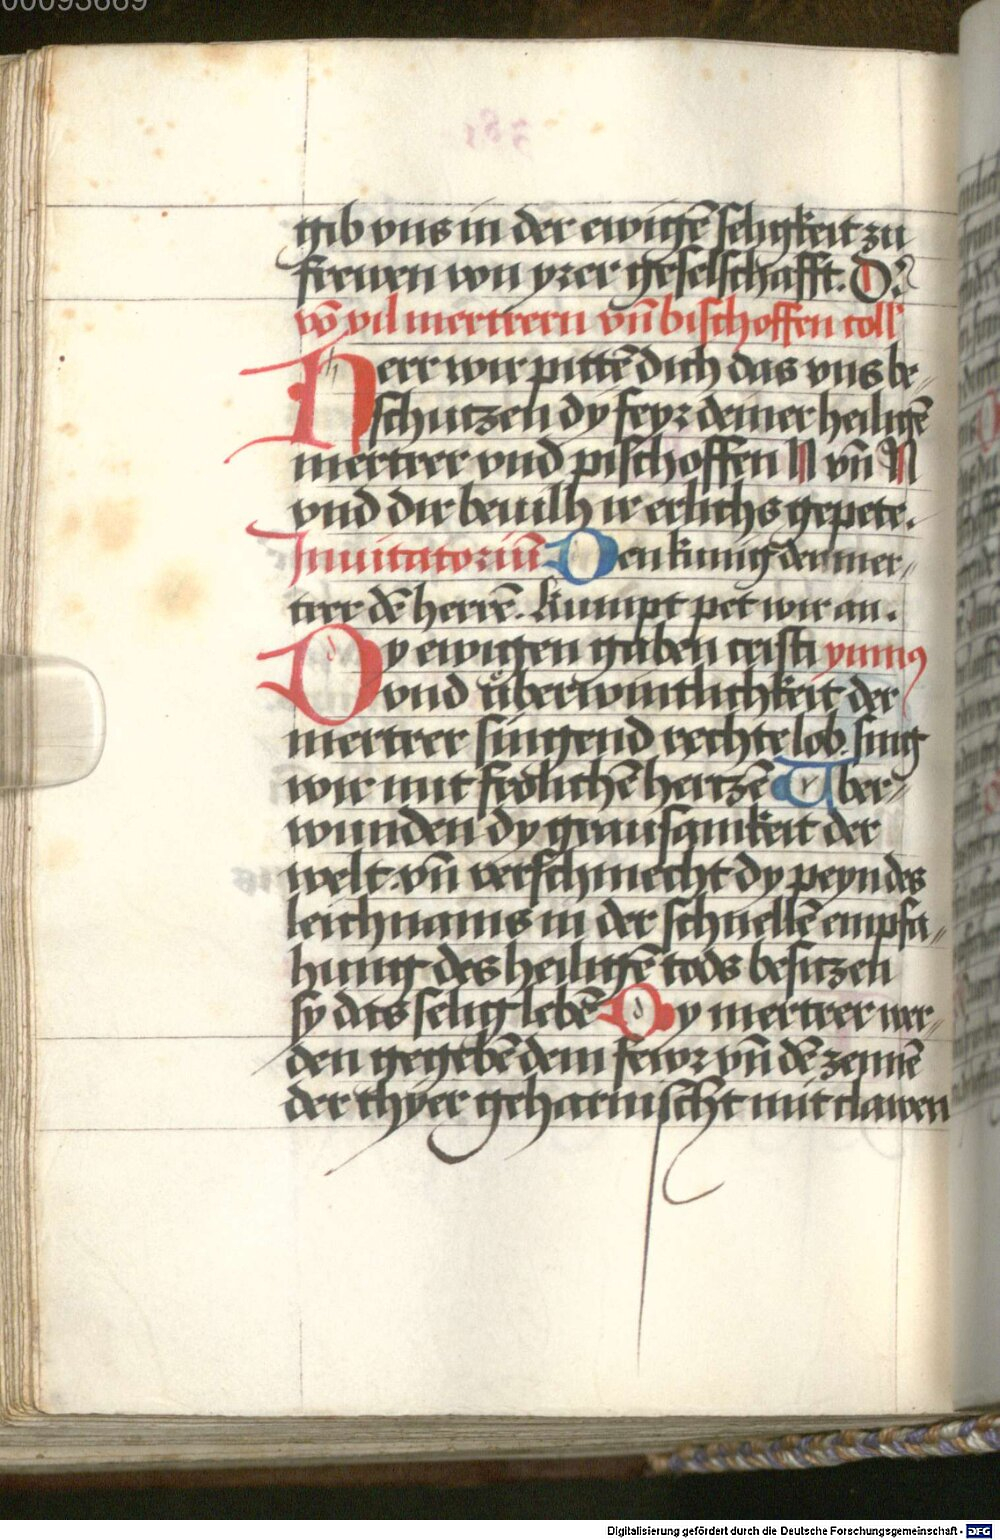 00093669
gib vns in der ewigē seligkeit zu
frewen von yrer geselschafft. D.
vō vil mertrern vn̄ bischoffen coll
Herr wir pittē dich das vns be„
schutzen dy feyr deiner heiligē
mertrer vnd pischoffen N vn̄ N
vnd dir beuilh ir erlichs gepete.
Inuitatoriū Den kunig der mer„
trer dē herrē. kumpt pet wir an.
Dy ewigen gaben cristi ymnus
vnd vberwintlichkeit der
mertrer singend rechte lob. sing
wir mit frölichē hertzē Vber„
wunden dy grausamkeit der
welt. vn̄ verschmecht dy peyn des
leichnams in der schnellē empfa„
hung des heiligē tods besitzen
sy das selig lebē Dy mertrer wer„
den gegebē dem fewr vn̄ dē zennē
der thyer geharnischt mit clawen
Digitalisierung gefördert durch die Deutsche Forschungsgemeinschaft - DFG